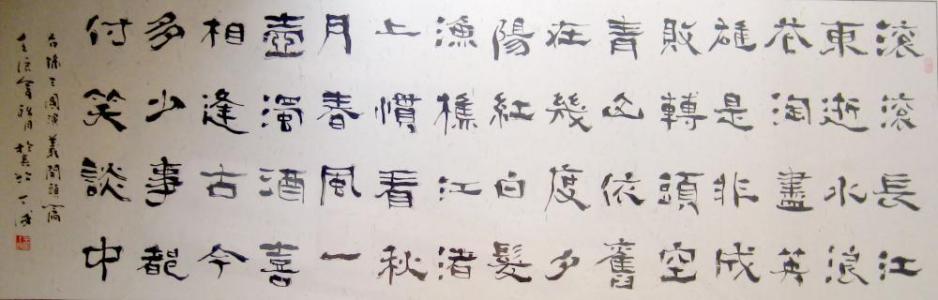 滾滾長江
東逝水浪
花淘盡英
雄是非成
敗轉頭空
青山依舊
在幾度夕
陽紅白髮
漁樵江渚
上慣看秋
月春風一
壺濁酒喜
相逢古今
多少事都
付笑談中
三國演義開